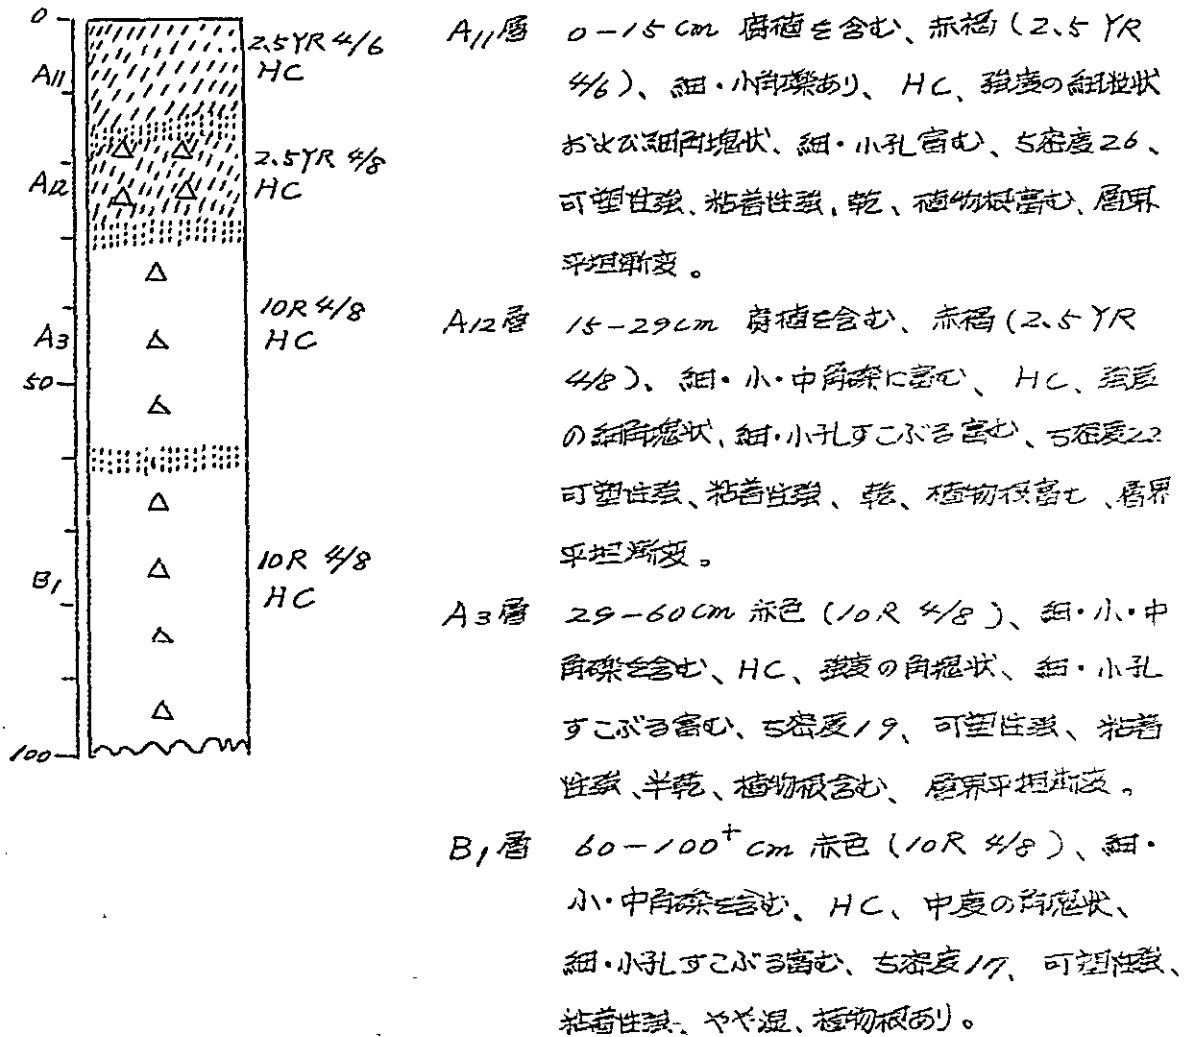 0
A11
2.5YR 4/6
HC
A12
2.5YR 4/8
HC
10R 4/8
HC
A3
50
B1
10R 4/8
HC
100
A11層 0-15cm 腐植を含む、赤褐(2.5YR
4/6)、細・小角礫あり、HC、強度の細粒状
および細角塊状、細・小孔富む、ち密度26、
可塑性強、粘着性強、乾、植物根富む、層界
平坦漸変。
A12層 15-29cm 腐植を含む、赤褐(2.5YR
4/8)、細・小・中角礫に富む、HC、強度
の細角塊状、細・小孔すこぶる富む、ち密度22
可塑性強、粘着性強、乾、植物根富む、層界
平坦漸変。
A3層 29-60cm 赤色(10R 4/8)、細・小・中
角礫を含む、HC、強度の角塊状、細・小孔
すこぶる富む、ち密度19、可塑性強、粘着
性強、半乾、植物根含む、層界平坦漸変。
B1層 60-100+cm 赤色(10R 4/8)、細・
小・中角礫を含む、HC、中度の角塊状、
細・小孔すこぶる富む、ち密度17、可塑性強、
粘着性強、やや湿、植物根あり。